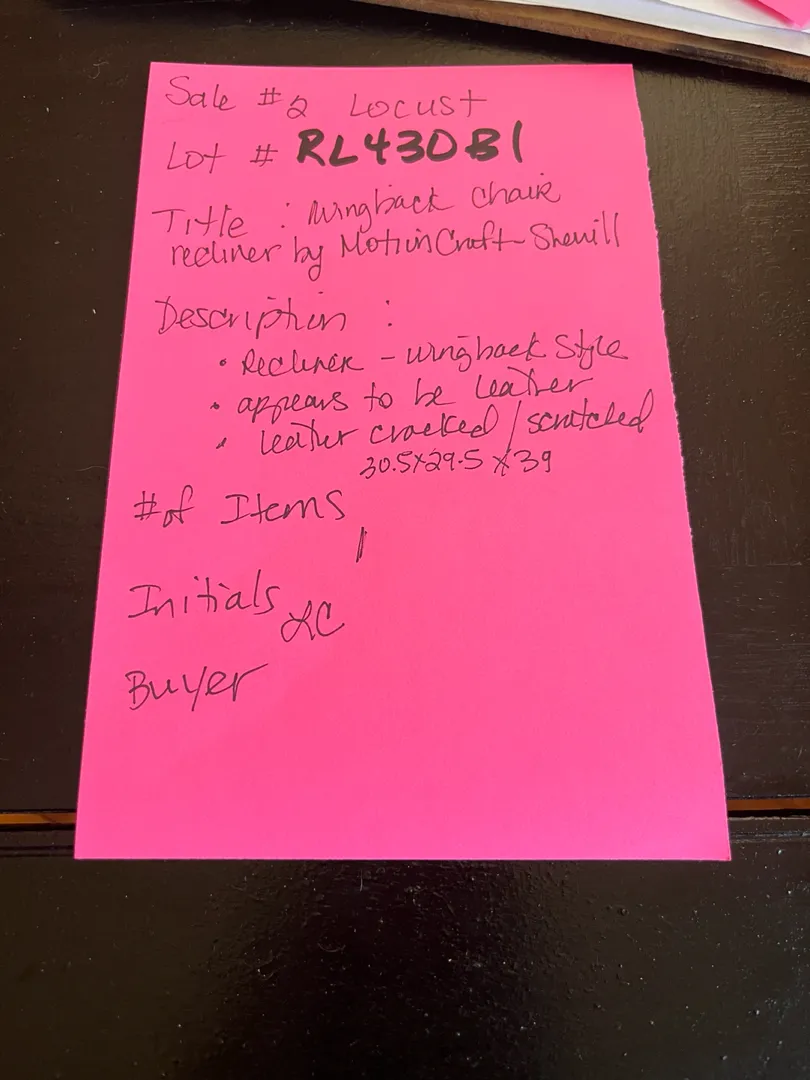 Sale #2 Locust
Lot # RL430B1
Title : wingback chair
recliner by MotionCraft-Sherrill
Description :
• Recliner - wingback style
• appears to be leather
• leather cracked / scratched
30.5x29.5 x 39
# of Items
1
Initials LC
Buyer